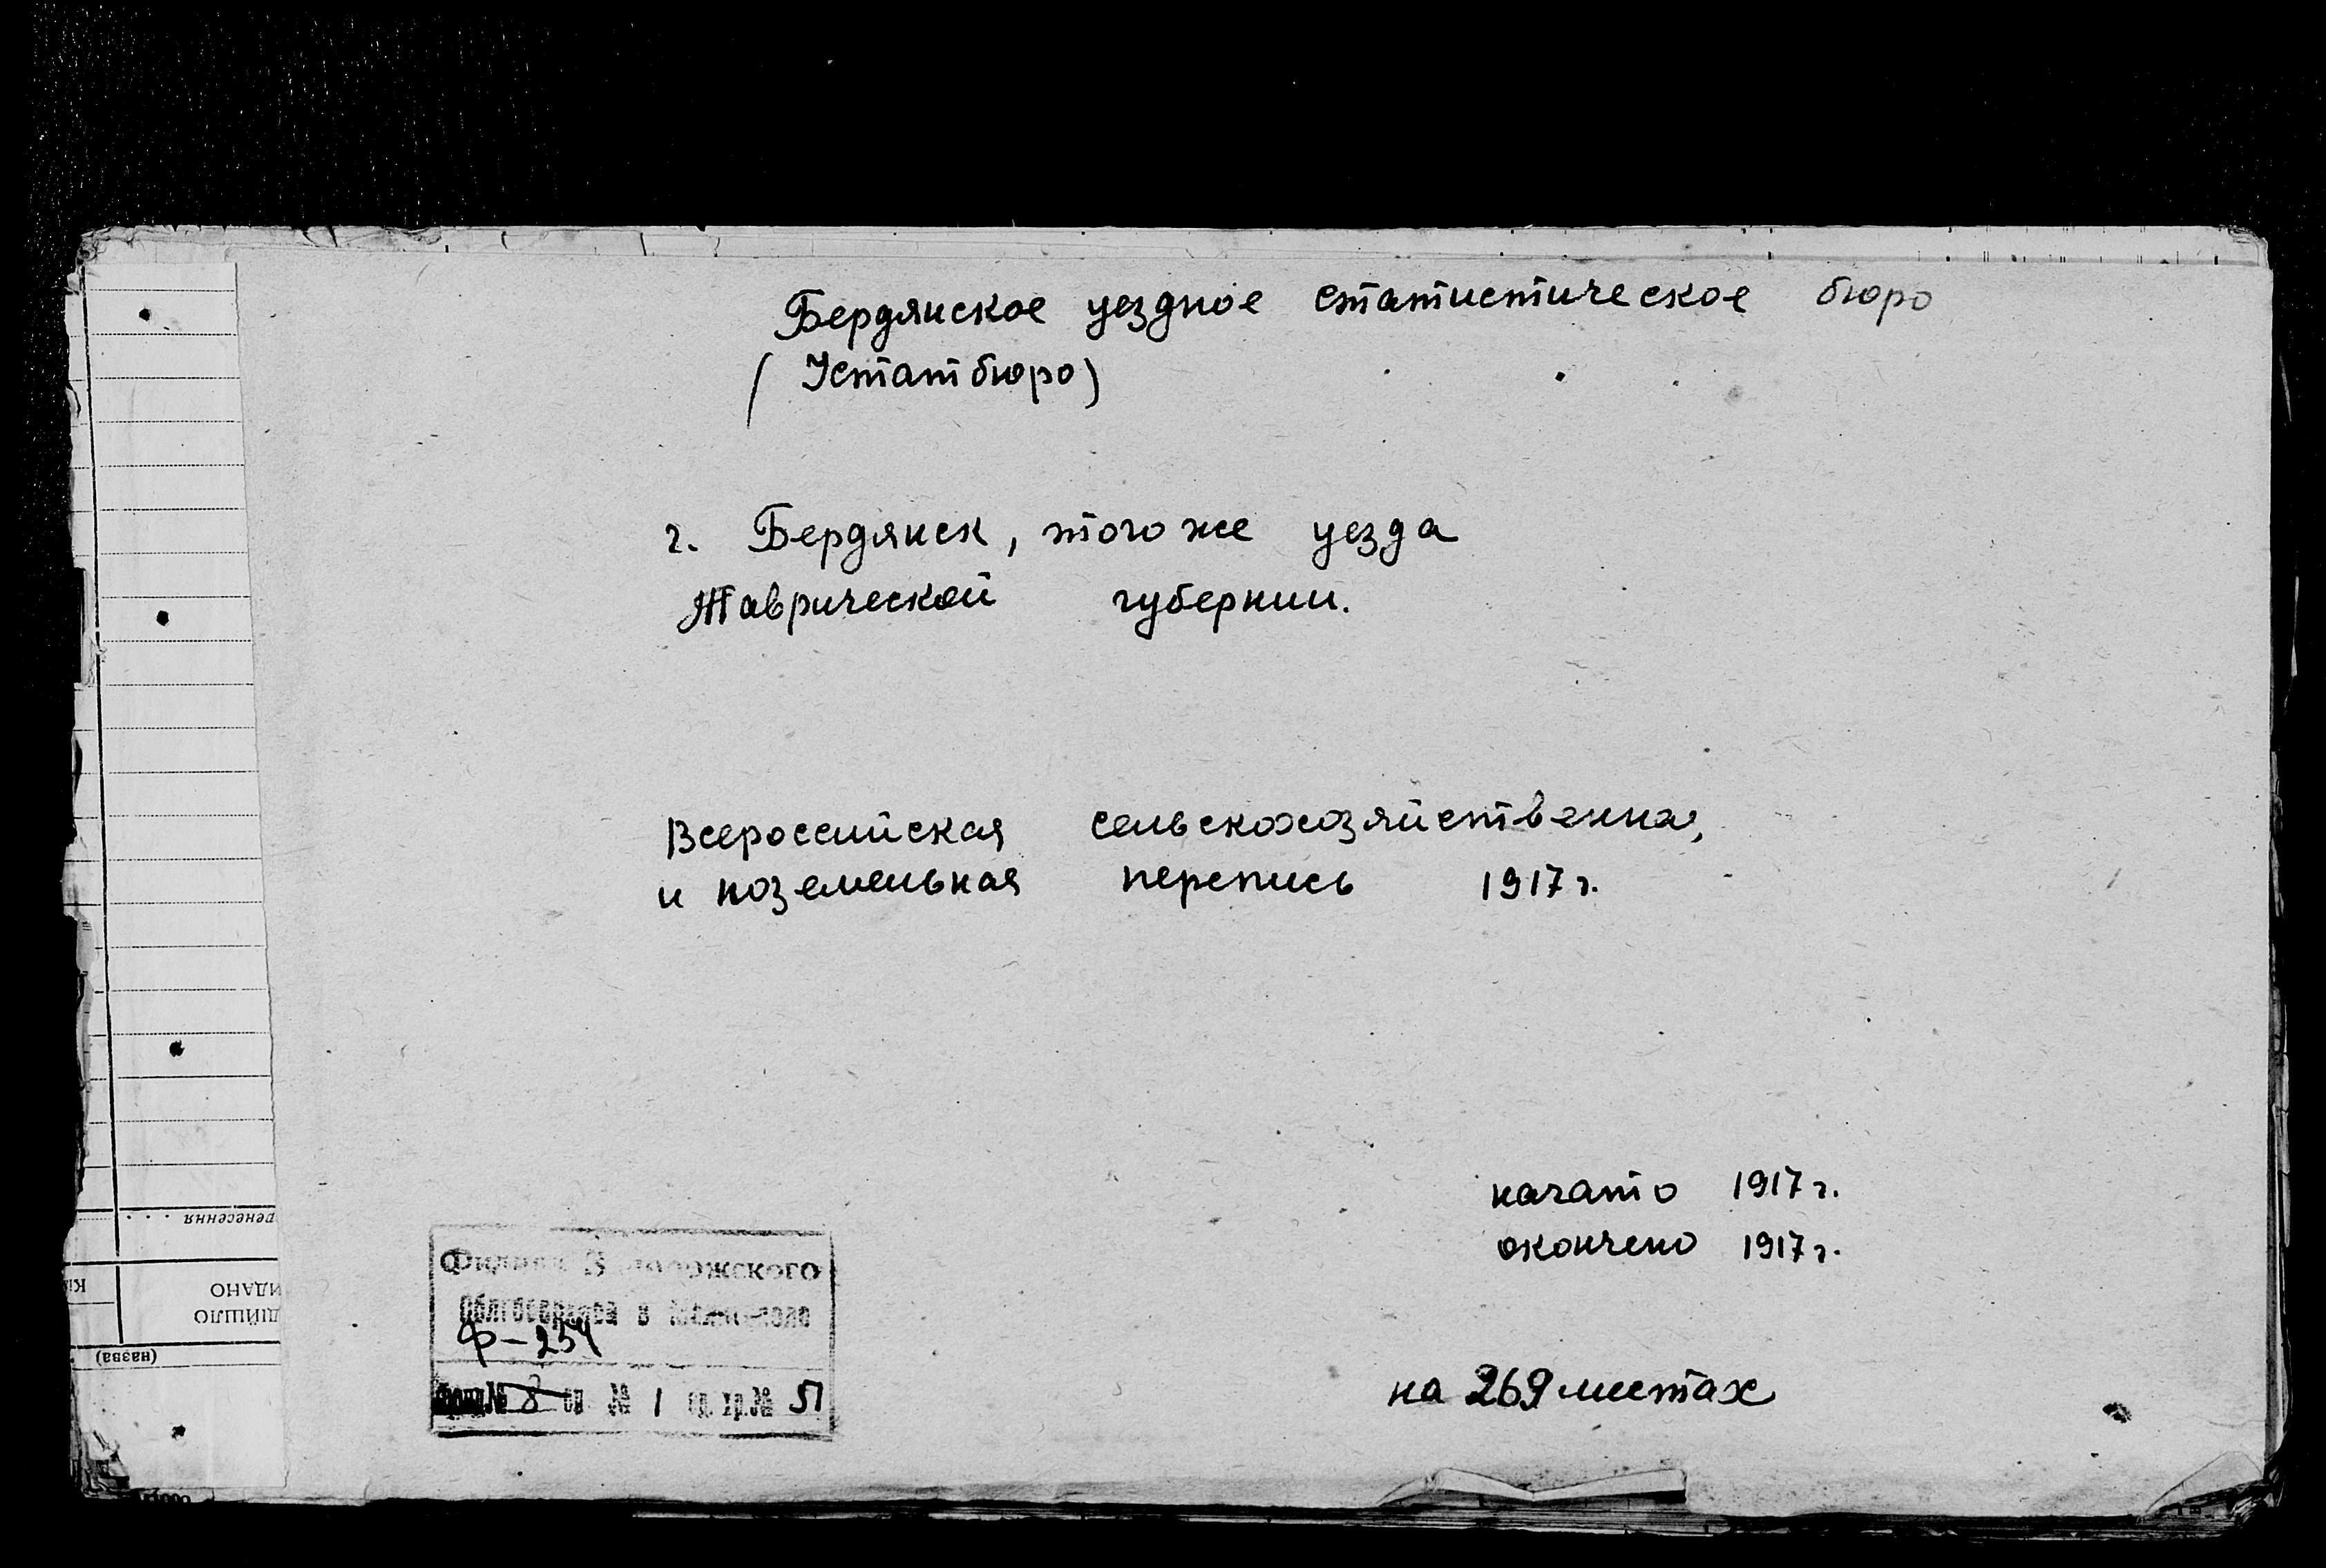 Бердянское уездное статистическое бюро
(Устатбюро)
г. Бердянск, того же уезда
Таврической губернии.
Всероссийская сельскохозяйственная
и поземельная перепись 1917 г.
начато 1917 г.
окончено 1917 г.
на 269 листах
Филиал Запорожского
Ф-254
Фонд № 8 оп № 1 ед. хр. № 51
ренесення . . .
ИДАНО
ДІЙШЛО
(назва)